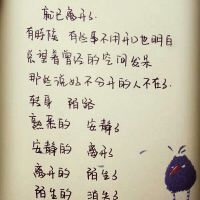 就已离开了.
有时候 有些事不用开口也明白
希望着曾经的空间发呆
那些说好不分开的人不在了.
转身 陌路
熟悉的 安静了
安静的 离开了
离开的 陌生了
陌生的 消失了